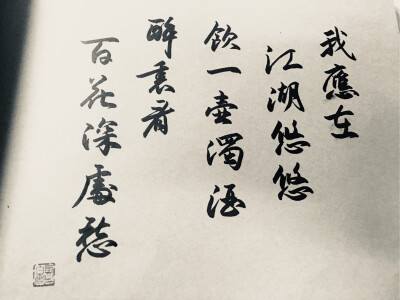 我應在
江湖悠悠
飲一壺濁酒
醉裏看
百花深處愁